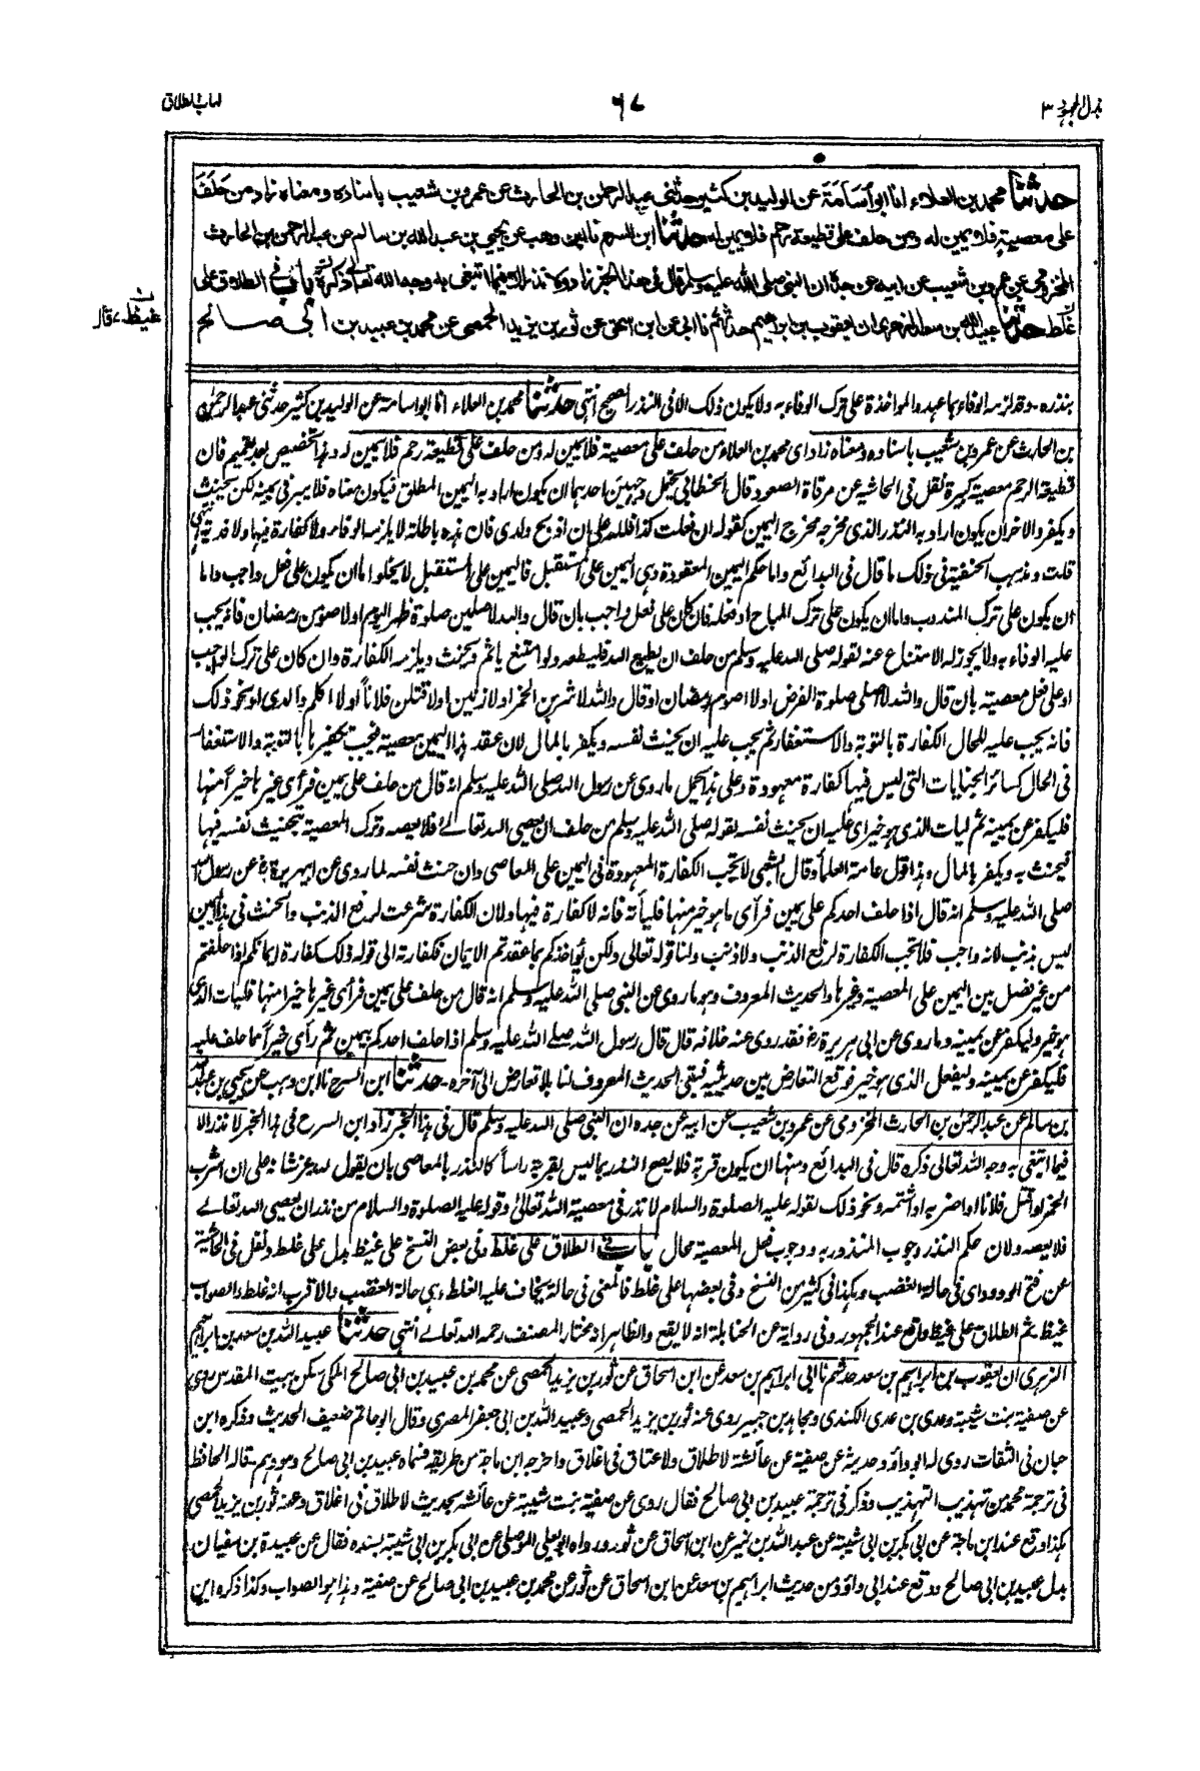 بذل المجهود ٣
٦٧
كتاب الطلاق
حدثنا محمد بن العلاء انا ابو أسامة عن الوليد بن كثير حدثني عبد الرحمن بن الحارث عن عمرو بن شعيب باسناده ومعناه زاد من حلف
على معصية فلا يمين له ومن حلف على قطيعة رحم فلا يمين له حدثنا ابن السرح نا ابن وهب عن يحيى بن عبد الله بن سالم عن عبد الرحمن بن الحارث
المخزومي عن عمرو بن شعيب عن ابيه عن جده ان النبي صلى الله عليه وسلم قال في هذا الخبر زاد ولا نذر الا فيما ابتغي به وجه الله تعالى ذكره باب في الطلاق على
غلط حدثنا عبيد الله بن سعد الزهري ان يعقوب بن ابراهيم حدثهم نا ابي عن ابن اسحق عن ثور بن يزيد الحمصي عن محمد بن عبيد بن ابي صالح
غيظ، قال
بنذره - وقد لزمه الوفاء بما عهده والمواخذة على ترك الوفاء به ولا يكون ذلك الا في النذر الصحيح انتهى حدثنا محمد بن العلاء انا ابو اسامة عن الوليد بن كثير حدثني عبد الرحمن
بن الحارث عن عمرو بن شعيب باسناده ومعناه زاد اي محمد بن العلاء من حلف على معصية فلا يمين له ومن حلف على قطيعة رحم فلا يمين له وهذا تخصيص بعد تعميم فان
قطيعة الرحم معصية كبيرة نقل في الحاشية عن مرقاة الصعود قال الخطابي يحتمل وجهين احدهما ان يكون اراد به اليمين المطلق فيكون معناه فلا يبر في يمينه لكن يحنث
ويكفر والاخر ان يكون اراد به النذر الذي مخرجه مخرج اليمين كقوله ان فعلت كذا فلله علي ان اذبح ولدي فان نذره باطلة لا يلزمه الوفاء ولا كفارة فيها ولا فدية انتهى
قلت ومذهب الحنفية في ذلك ما قال في البدائع واما حكم اليمين المعقودة وهي اليمين على المستقبل فاليمين على المستقبل لا يخلوا اما ان يكون على فعل واجب واما
ان يكون على ترك المندوب واما ان يكون على ترك المباح او فعله فان كان على فعل واجب بان قال والله لاصلين صلوة ظهر اليوم او لاصومن رمضان فانه يجب
عليه الوفاء به ولا يجوز له الامتناع عنه لقوله صلى الله عليه وسلم من حلف ان يطيع الله فليطعه ولو امتنع ياثم ويحنث ويلزمه الكفارة وان كان على ترك الواجب
او على فعل معصية بان قال والله لا اصلي صلوة الفرض او لا اصوم رمضان او قال والله لاشربن الخمر او لازنين او لاقتلن فلاناً او لا اكلم والدي او نحو ذلك
فانه يجب عليه للحال الكفارة بالتوبة والاستغفار ثم يجب عليه ان يحنث نفسه ويكفر بالمال لان عقد هذا اليمين معصية فيجب تكفيرها بالتوبة والاستغفار
في الحال كسائر الجنايات التي ليس فيها كفارة معهودة وعلى هذا يحمل ما روي عن رسول الله صلى الله عليه وسلم انه قال من حلف على يمين فرأى غيرها خيراً منها
فليكفر عن يمينه ثم ليات الذي هو خير اي عليه ان يحنث نفسه لقوله صلى الله عليه وسلم من حلف ان يعصي الله تعالى فلا يعصه وترك المعصية بتحنيث نفسه فيها
فيحنث به ويكفر بالمال وهذا قول عامة العلماء وقال الشعبي لا تجب الكفارة المعهودة في اليمين على المعاصي وان حنث نفسه لما روي عن ابي هريرة رض عن رسول الله
صلى الله عليه وسلم انه قال اذا حلف احدكم على يمين فرأى ما هو خير منها فليأته فانه لا كفارة فيها ولان الكفارة شرعت لرفع الذنب والحنث في هذا اليمين
ليس بذنب لانه واجب فلا تجب الكفارة لرفع الذنب ولا ذنب ولنا قوله تعالى ولكن يؤاخذكم بما عقدتم الايمان فكفارته الى قوله ذلك كفارة ايمانكم اذا حلفتم
من غير فصل بين اليمين على المعصية وغيرها والحديث المعروف وهو ما روي عن النبي صلى الله عليه وسلم انه قال من حلف على يمين فرأى غيرها خيرا منها فليات الذي
هو خير وليكفر عن يمينه وما روي عن ابي هريرة رض فقد روي عنه خلافه قال قال رسول الله صلى الله عليه وسلم اذا حلف احدكم بيمين ثم رأى خيراً مما حلف عليه
فليكفر عن يمينه وليفعل الذي هو خير فوقع التعارض بين حديثيه فبقي الحديث المعروف لنا بلا تعارض الى آخره - حدثنا ابن السرح نا ابن وهب عن يحيى بن عبد الله
بن سالم عن عبد الرحمن بن الحارث المخزومي عن عمرو بن شعيب عن ابيه عن جده ان النبي صلى الله عليه وسلم قال في هذا الخبر زاد ابن السرح في هذا الخبر لا نذر الا
فيما ابتغي به وجه الله تعالى ذكره قال في البدائع ومنها ان يكون قربة فلا يصح النذر بما ليس بقربة راساً كالنذر بالمعاصي بان يقول لله عز شانه علي ان اشرب
الخمر او اقتل فلانا او اضربه او اشتمه ونحو ذلك لقوله عليه الصلوة والسلام لا نذر في معصية الله تعالى وقوله عليه الصلوة والسلام من نذر ان يعصي الله تعالى
فلا يعصه ولان حكم النذر وجوب المنذور به ووجوب فعل المعصية محال باب في الطلاق على غلط وفي بعض النسخ على غيظ بدل على غلط ونقل في الحاشية
عن فتح الودود اي في حالة الغضب وهكذا في كثير من النسخ وفي بعضها على غلط فالمعنى في حالة يخاف عليه الغلط وهي حالة الغضب والاقرب انه غلط والصواب
غيظ ثم الطلاق على غيظ واقع عند الجمهور وفي رواية عن الحنابلة انه لا يقع والظاهر انه مختار المصنف رحمه الله تعالى انتهى حدثنا عبيد الله بن سعد بن ابراهيم
الزهري ان يعقوب بن ابراهيم بن سعد حدثهم نا ابي ابراهيم بن سعد عن ابن اسحاق عن ثور بن يزيد الحمصي عن محمد بن عبيد بن ابي صالح المكي سكن بيت المقدس روى
عن صفية بنت شيبة وعدي بن عدي الكندي ومجاهد بن جبير روى عنه ثور بن يزيد الحمصي وعبيد الله بن ابي جعفر المصري وقال ابو حاتم ضعيف الحديث وذكره ابن
حبان في الثقات روى له ابو داؤد حديثه عن صفية عن عائشة لا طلاق ولا عتاق في اغلاق واخرجه ابن ماجة من طريقه فسماه عبيد بن ابي صالح وهو وهم - قاله الحافظ
في ترجمة محمد من تهذيب التهذيب وذكر في ترجمة عبيد بن ابي صالح فقال روى عن صفية بنت شيبة عن عائشة بحديث لا طلاق في اغلاق وعنه ثور بن يزيد الحمصي
هكذا وقع عند ابن ماجة عن ابي بكر بن ابي شيبة عن عبد الله بن نمير عن ابن اسحاق عن ثور ورواه ابو يعلى الموصلي عن ابي بكر بن ابي شيبة بسنده فقال عن عبيدة بن سفيان
بدل عبيد بن ابي صالح ووقع عند ابي داؤد من حديث ابراهيم بن سعد عن ابن اسحاق عن ثور عن محمد بن عبيد بن ابي صالح عن صفية وهذا هو الصواب وكذا ذكره ابن